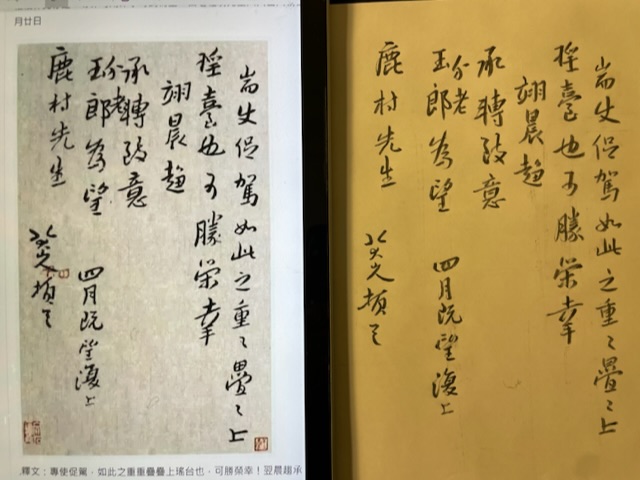 月廿日
耑使促駕如此之重〻疊〻上
瑤臺也可勝榮幸
翊晨趨
承轉致意
玢老郎為望
四月既望復上
鹿村先生
八大頓首
釋文：專使促駕，如此之重重疊疊上瑤台也，可勝榮幸！翌晨趨承
耑使促駕如此之重〻疊〻上
瑤臺也可勝榮幸
翊晨趨
承轉致意
玢老郎為望
四月既望復上
鹿村先生
八大頓首